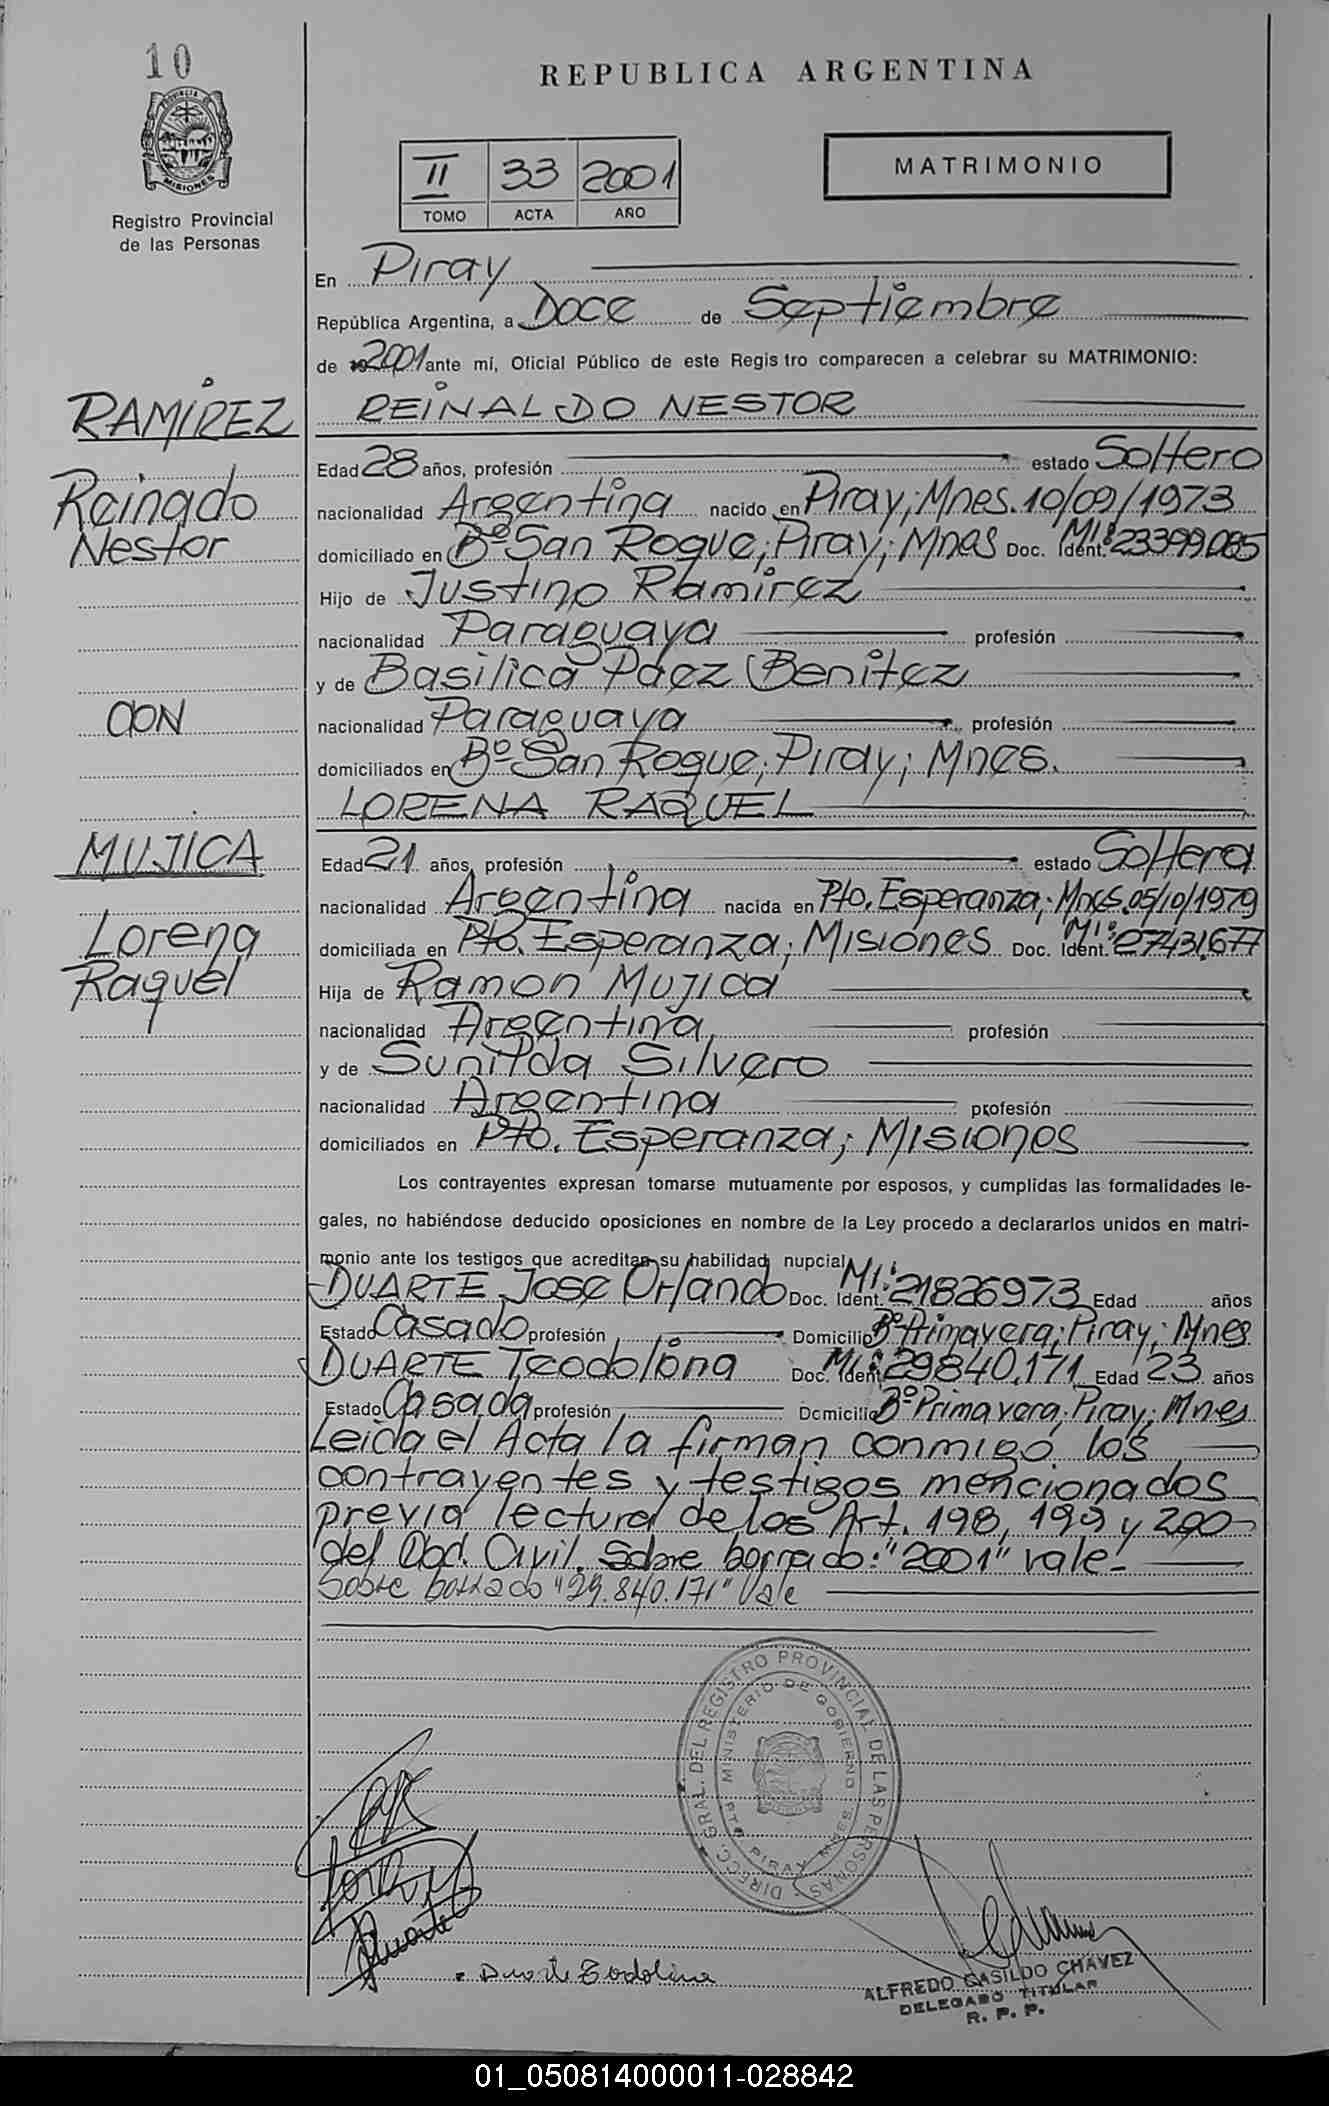 10
PROVINCIA DE
MISIONES
Registro Provincial
de las Personas
REPUBLICA ARGENTINA
II 33 2001
TOMO ACTA AÑO
MATRIMONIO
En Piray
República Argentina, a Doce de Septiembre
de 2001 ante mí, Oficial Público de este Regis tro comparecen a celebrar su MATRIMONIO:
RAMIREZ
REINALDO NESTOR
Edad 28 años, profesión estado Soltero
Reinado
nacionalidad Argentina nacido en Piray; Mnes. 10/09/1973
Nestor
domiciliado en Bº San Roque; Piray; Mnes Doc. Ident. MI: 23399.085
Hijo de Justino Ramirez
nacionalidad Paraguaya profesión
y de Basilica Paez Benitez
CON
nacionalidad Paraguaya profesión
domiciliados en Bº San Roque; Piray; Mnes.
LORENA RAQUEL
MUJICA
Edad 21 años, profesión estado Soltera
nacionalidad Argentina nacida en Pto. Esperanza; Mnes. 05/10/1979
Lorena
domiciliada en Pto. Esperanza; Misiones Doc. Ident. MI: 27431.677
Raquel
Hija de Ramon Mujica
nacionalidad Argentina profesión
y de Sunilda Silvero
nacionalidad Argentina profesión
domiciliados en Pto. Esperanza; Misiones
Los contrayentes expresan tomarse mutuamente por esposos, y cumplidas las formalidades le-
gales, no habiéndose deducido oposiciones en nombre de la Ley procedo a declararlos unidos en matri-
monio ante los testigos que acreditan su habilidad nupcial
DUARTE Jose Orlando Doc. Ident. MI: 21826973 Edad años
Estado Casado profesión Domicilio Bº Primavera; Piray; Mnes
DUARTE Teodolina Doc. Ident. MI: 29840.171 Edad 23 años
Estado Casada profesión Domicilio Bº Primavera; Piray; Mnes
Leida el Acta la firman conmigo los
contrayentes y testigos mencionados
previa lectura de los Art. 198, 199 y 200
del Cod. Civil. Sobre borrado: "2001" vale-
Sobre borrado "29.840.171" Vale
DIRECC. GRAL. DEL REGISTRO PROVINCIAL DE LAS PERSONAS
MINISTERIO DE GOBIERNO
PTO PIRAY MNES.
Duarte
Duarte Teodolina
ALFREDO CASILDO CHAVEZ
DELEGADO TITULAR
R. P. P.
01_050814000011-028842